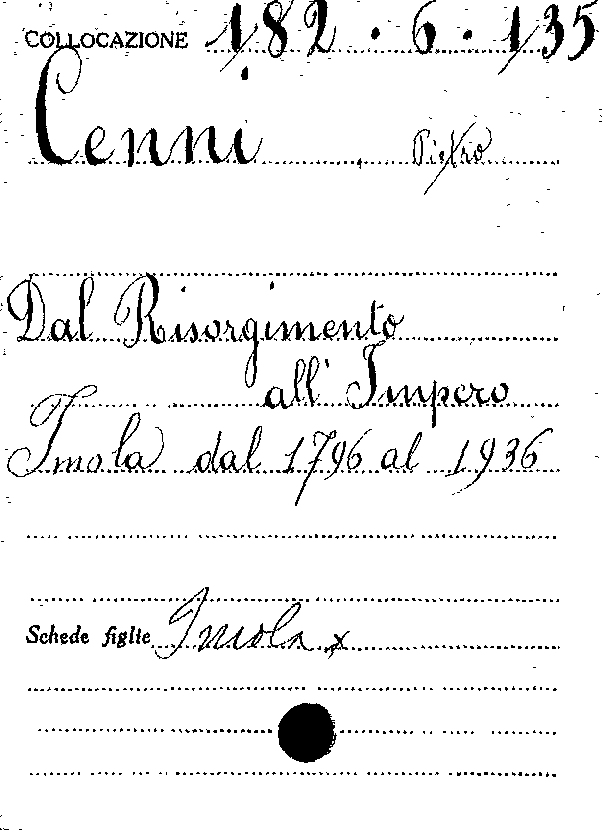 COLLOCAZIONE 182 . 6 . 135
Cenni, Pietro
Dal Risorgimento
all' Impero
Imola dal 1796 al 1936
Schede figlie Imola x